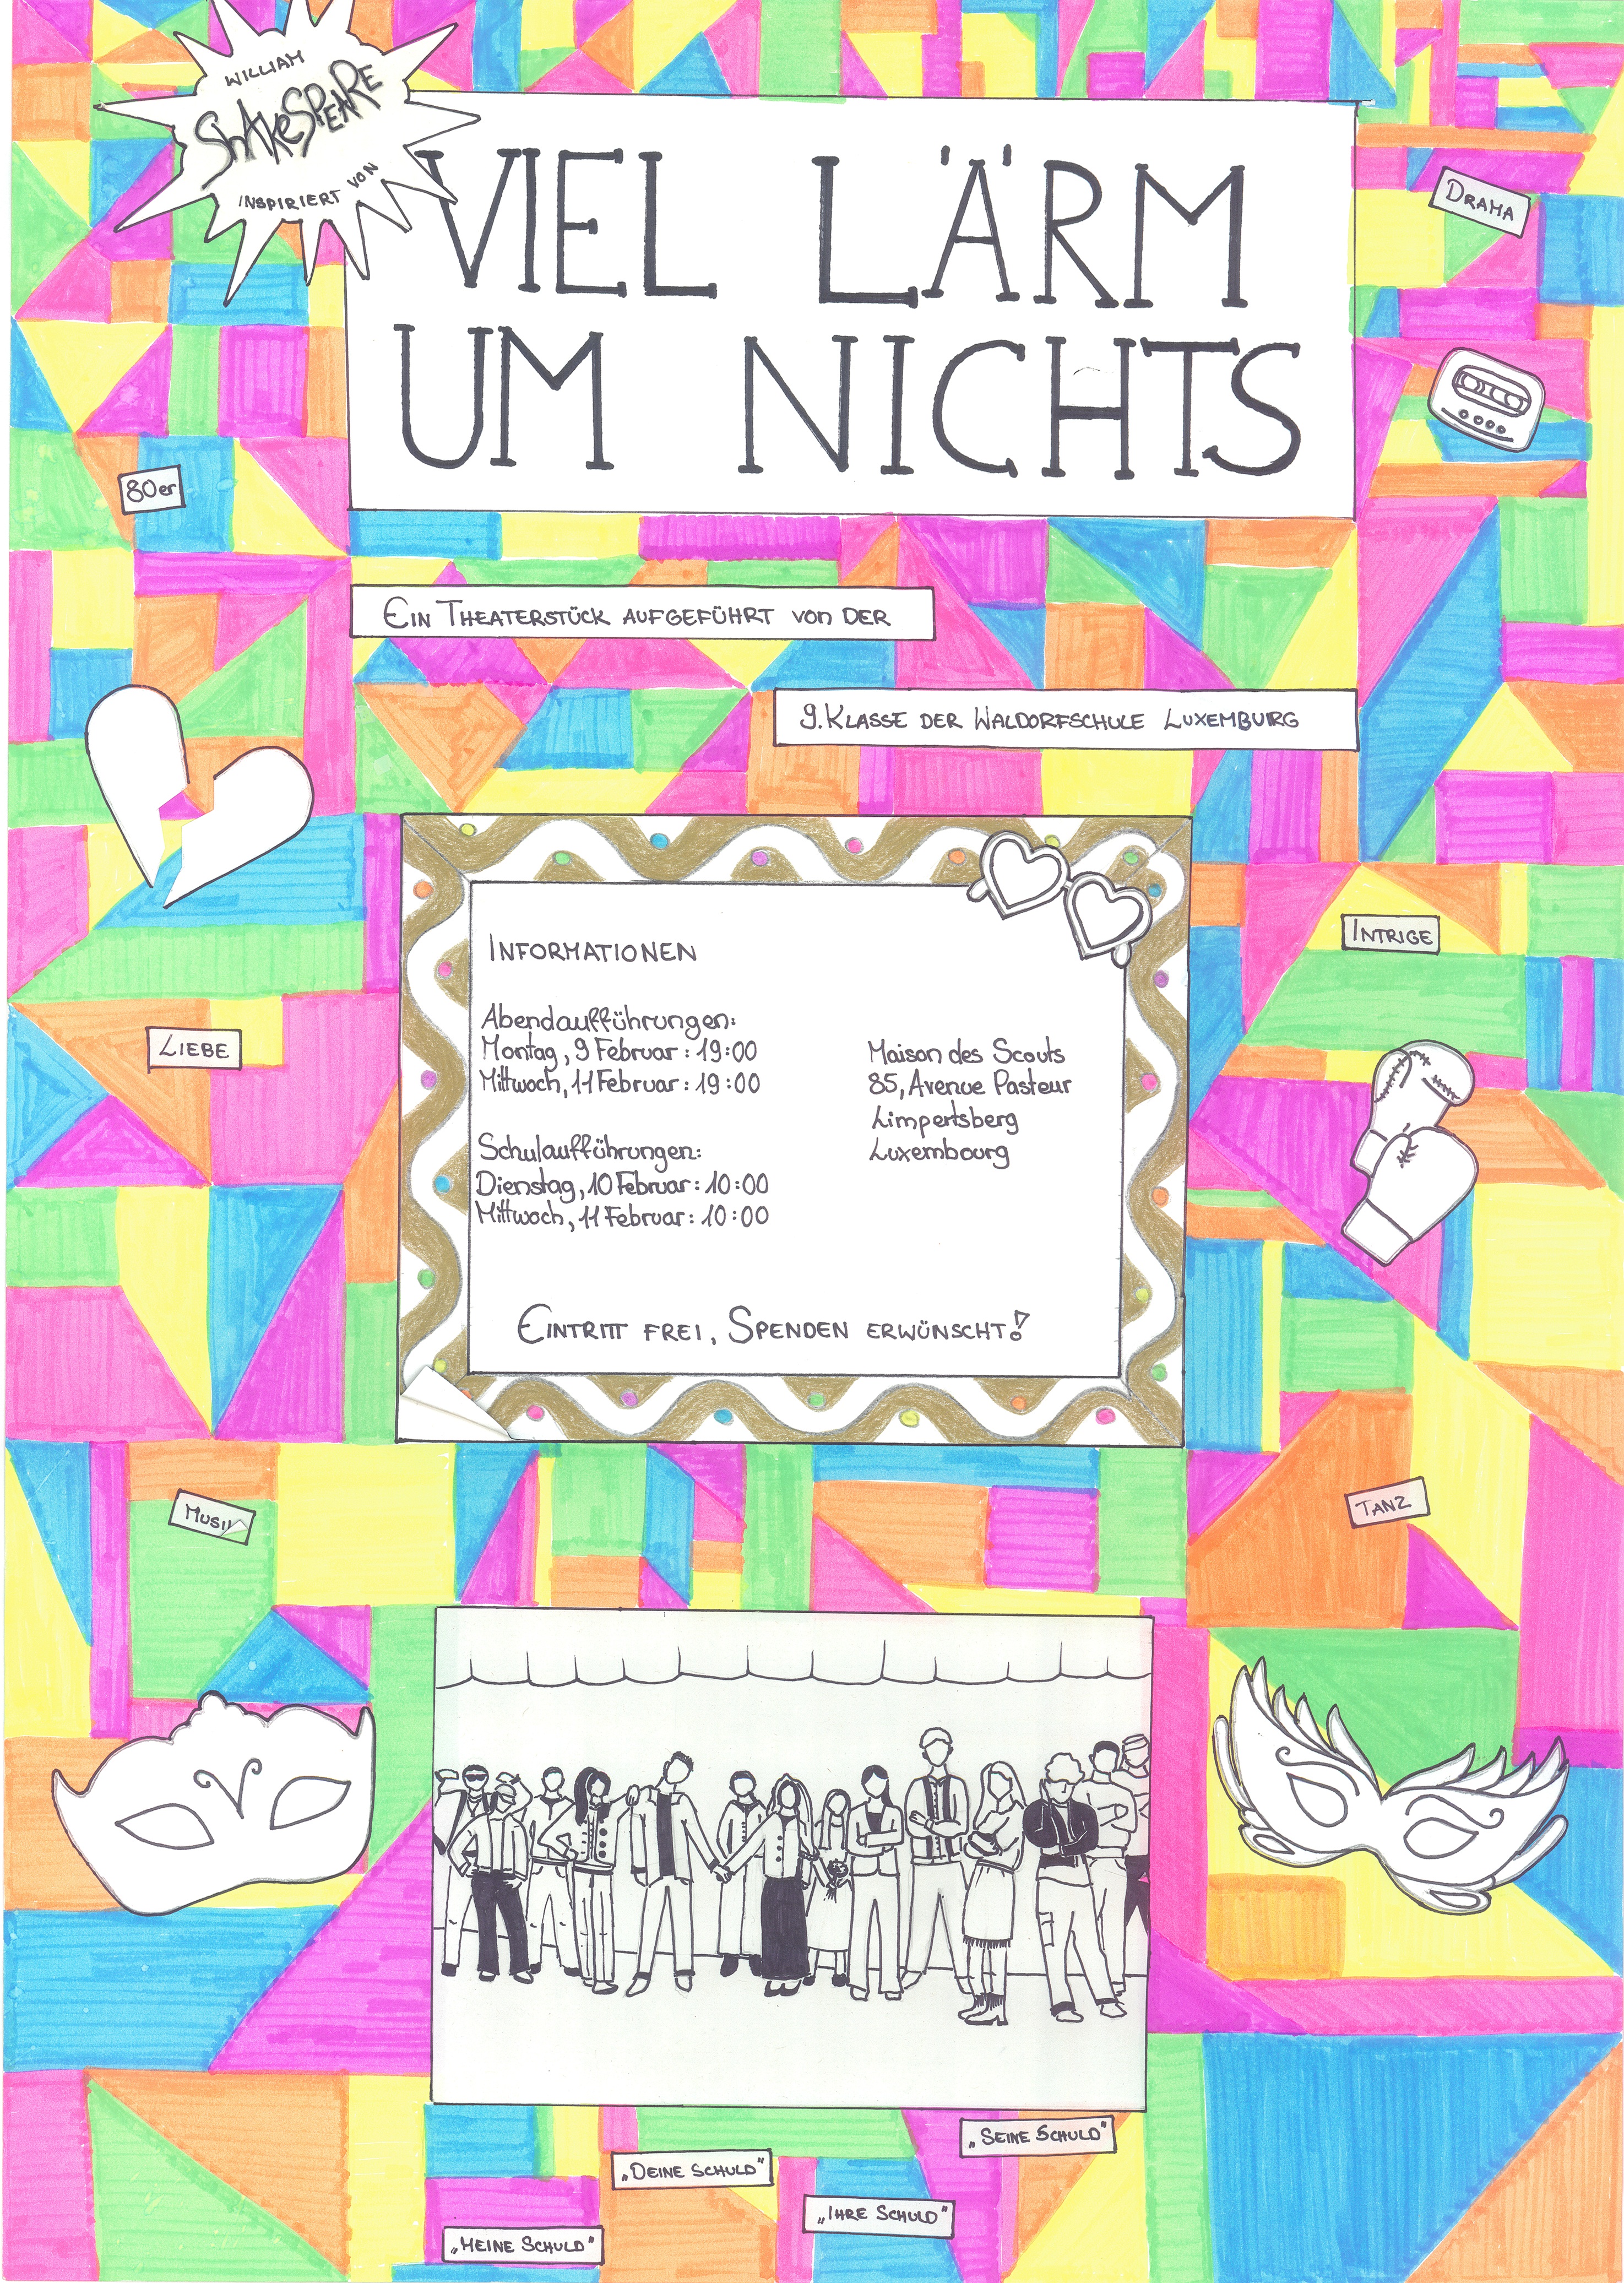 WILLIAM
SHAKESPEARE
INSPIRIERT VON
VIEL LÄRM
UM NICHTS
DRAMA
80er
EIN THEATERSTÜCK AUFGEFÜHRT VON DER
9. KLASSE DER WALDORFSCHULE LUXEMBURG
INTRIGE
LIEBE
INFORMATIONEN
Abendaufführungen:
Montag, 9 Februar: 19:00
Mittwoch, 11 Februar: 19:00
Schulaufführungen:
Dienstag, 10 Februar: 10:00
Mittwoch, 11 Februar: 10:00
Maison des Scouts
85, Avenue Pasteur
Limpertsberg
Luxembourg
EINTRITT FREI, SPENDEN ERWÜNSCHT!
MUSIK
TANZ
„SEINE SCHULD"
„DEINE SCHULD"
„IHRE SCHULD"
„MEINE SCHULD"